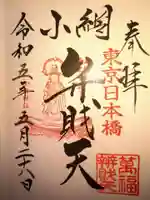 奉拝
東京日本橋
小網
弁財天
萬福
令和五年五月二十八日